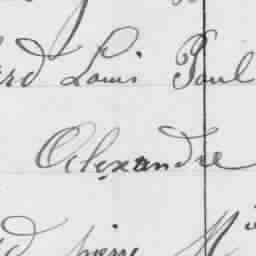 Louis Paul
Alexandre
pierre